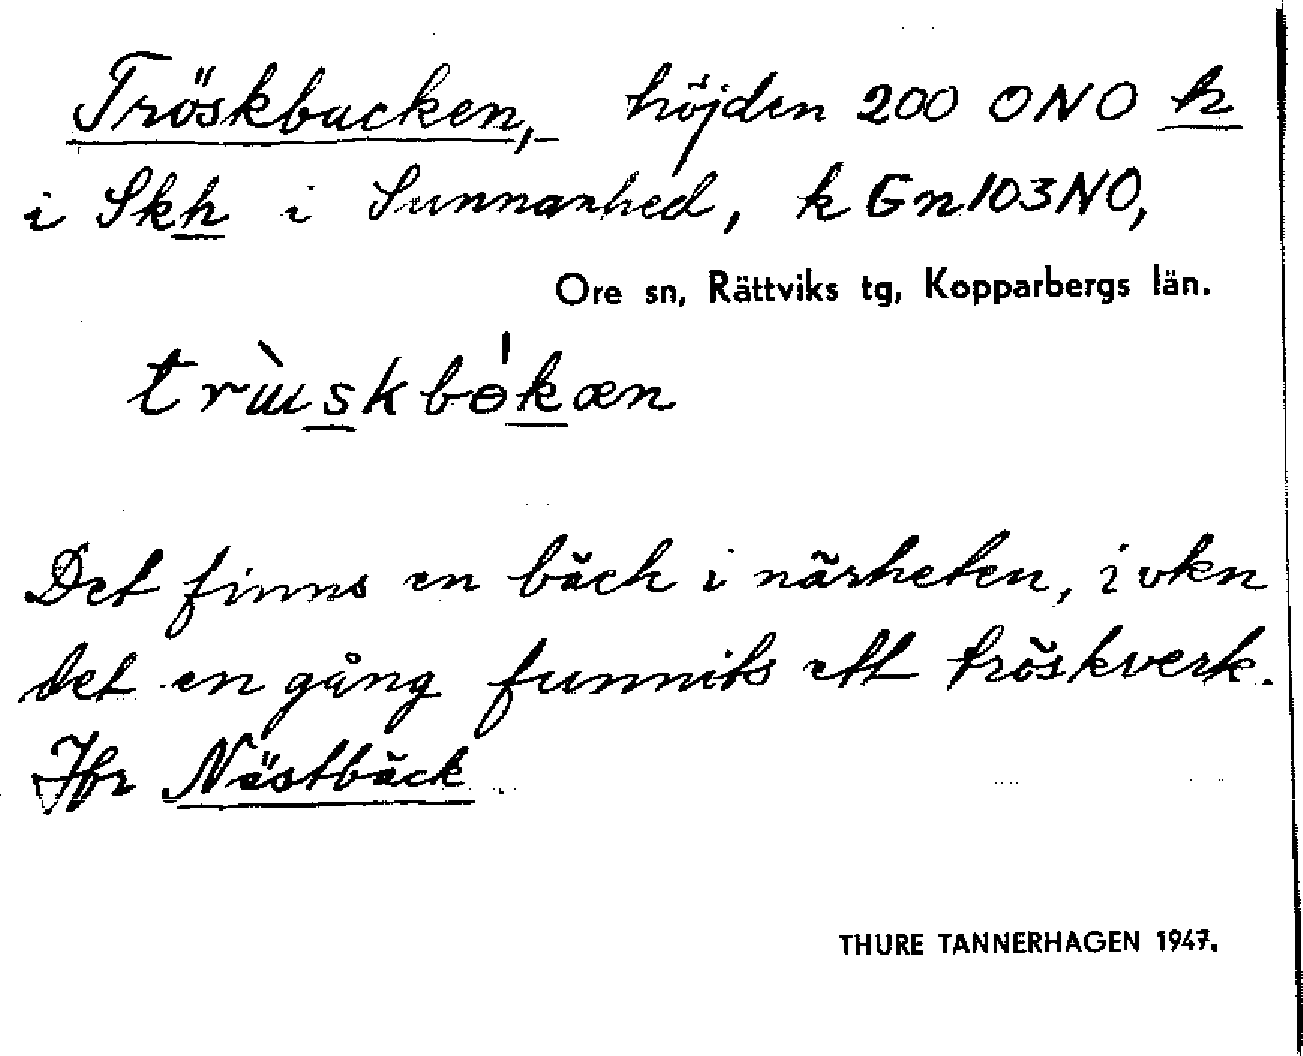 Tröskbacken, höjden 200 ONO h
i Skh i Sunnanhed, k Gn103NO,
Ore sn, Rättviks tg, Kopparbergs län.
Det finns en bäck i närheten, i vkn
det en gång funnits ett tröskverk.
Jfr Nästbäck
THURE TANNERHAGEN 1947.